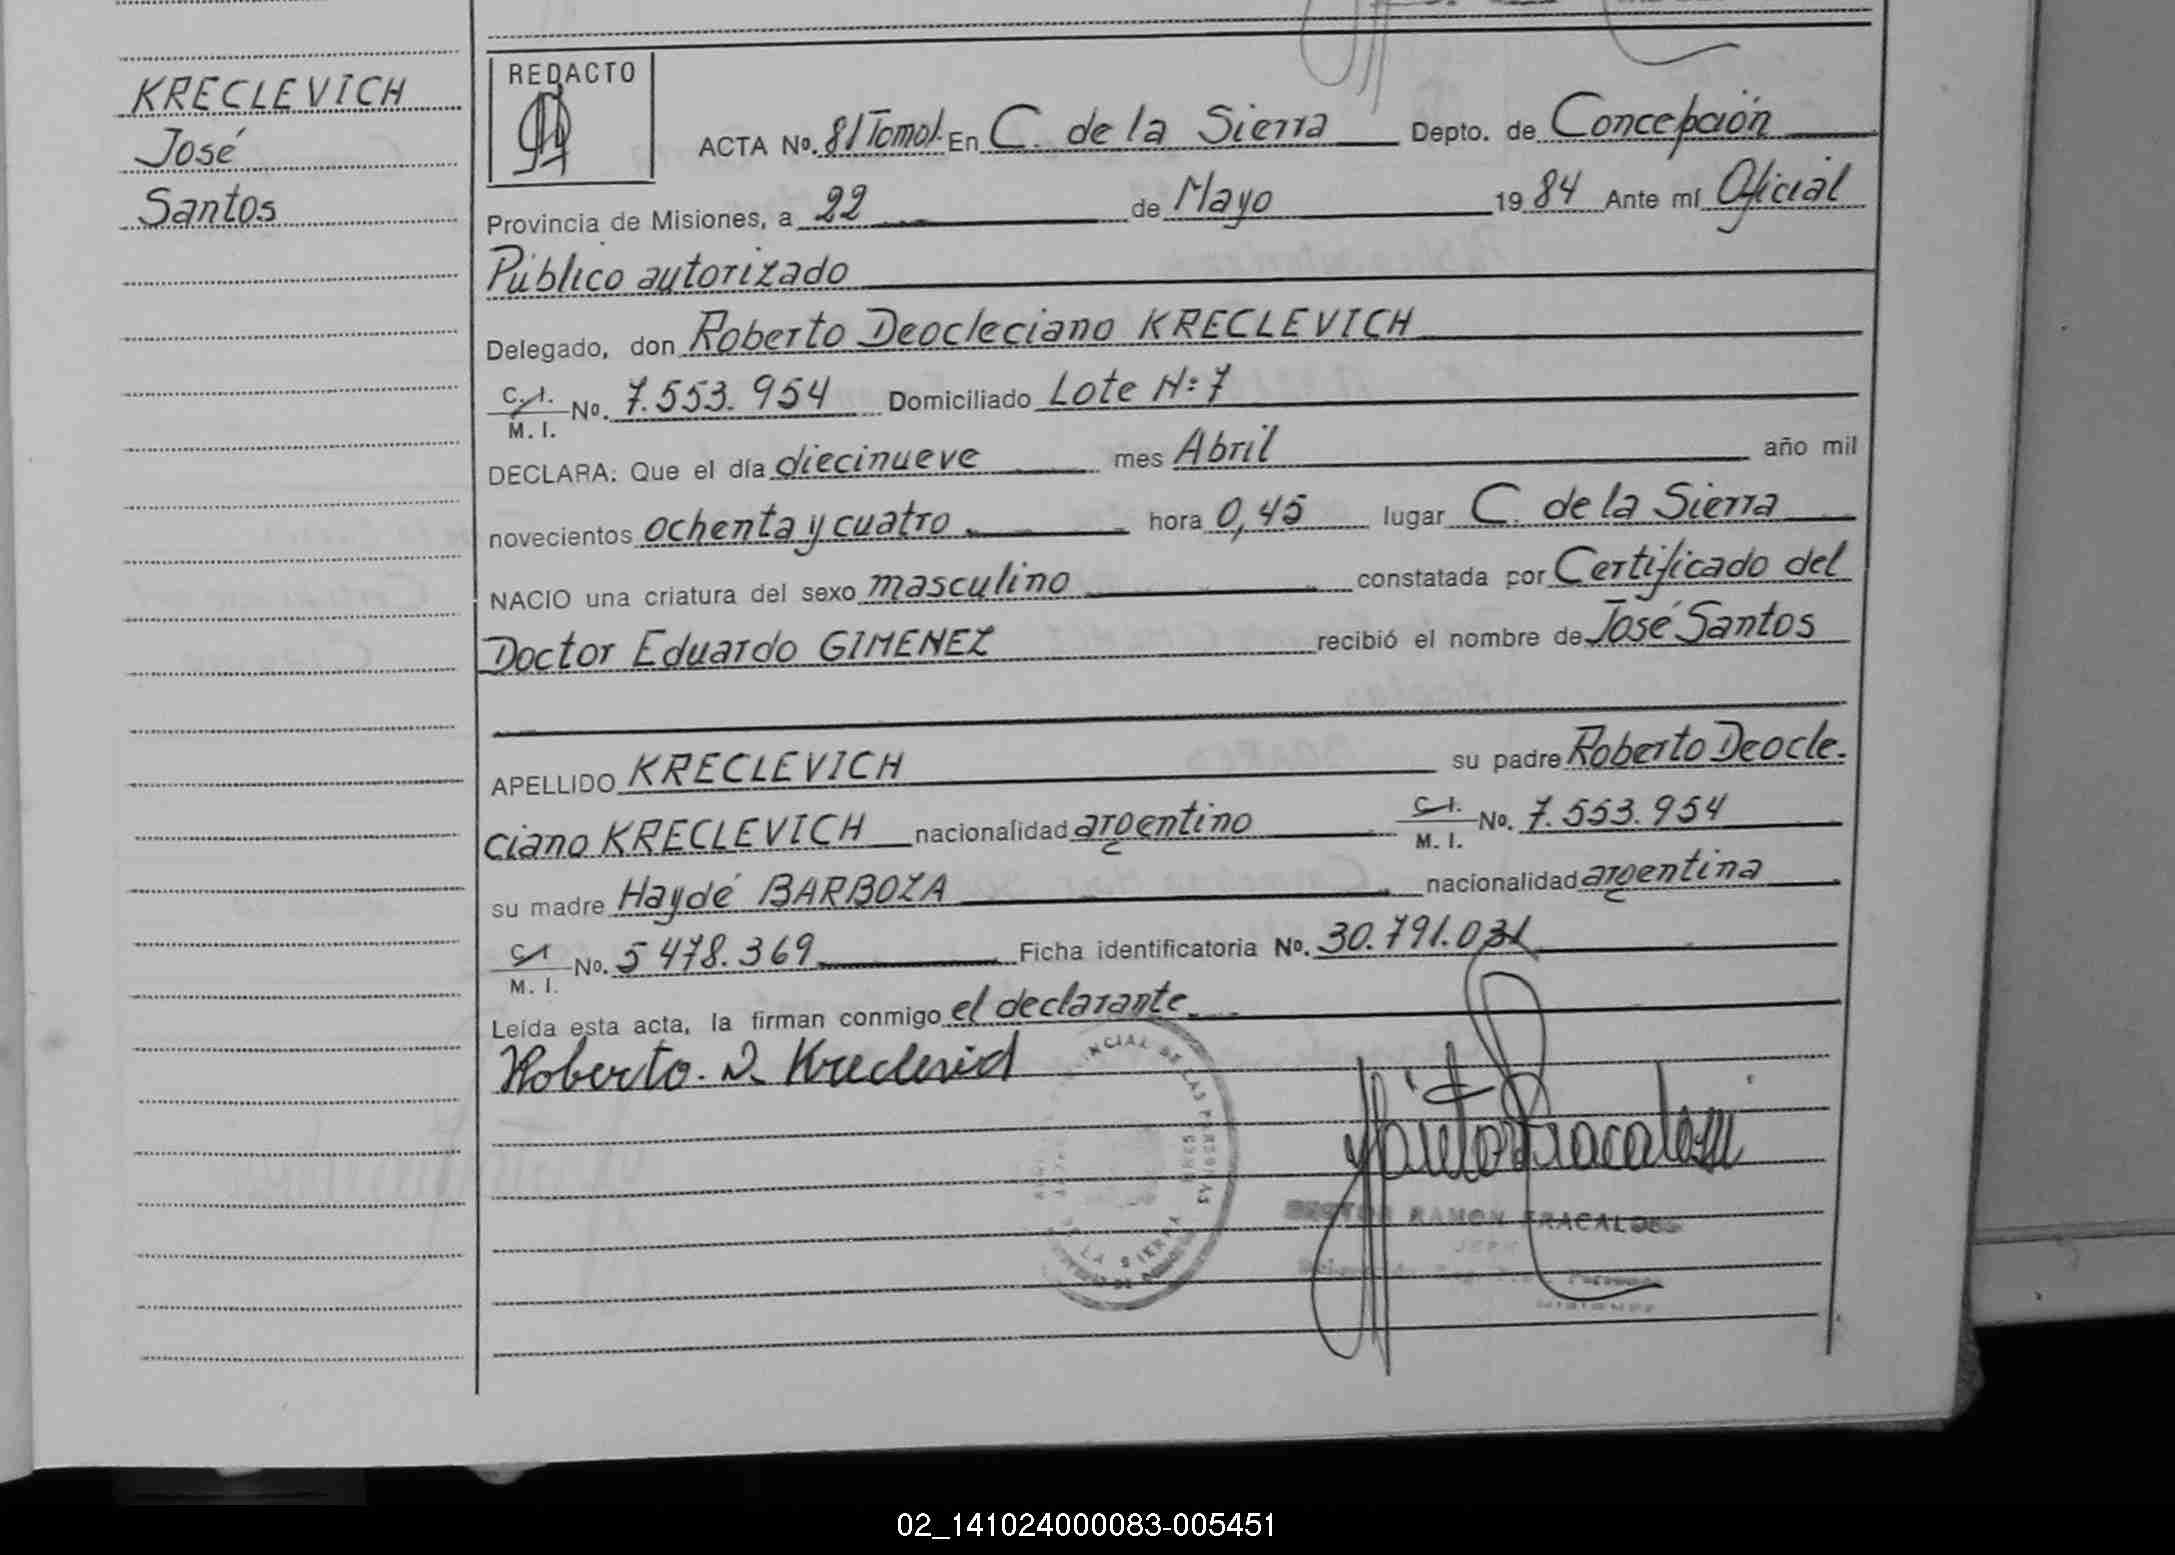 KRECLEVICH
José
Santos
REDACTO
ACTA No. 81 Tomo I. En C. de la Sierra Depto. de Concepción
Provincia de Misiones, a 22 de Mayo 1984 Ante mí Oficial
Público autorizado
Delegado, don Roberto Deocleciano KRECLEVICH
C. I.
M. I. No. 7.553.954 Domiciliado Lote N: 7
DECLARA: Que el día diecinueve mes Abril año mil
novecientos ochenta y cuatro hora 0,45 lugar C. de la Sierra
NACIO una criatura del sexo masculino constatada por Certificado del
Doctor Eduardo GIMENEZ recibió el nombre de José Santos
APELLIDO KRECLEVICH su padre Roberto Deocle-
ciano KRECLEVICH nacionalidad argentino C. I.
M. I. No. 7.553.954
su madre Haydé BARBOZA nacionalidad argentina
C. I.
M. I. No. 5 478.369 Ficha identificatoria No. 30.791.031
Leída esta acta, la firman conmigo el declarante
Roberto. D. Kreclevich
DE LAS PERSONAS
LA SIERRA
RAMON FRACALOSSI
MISIONES
02_141024000083-005451